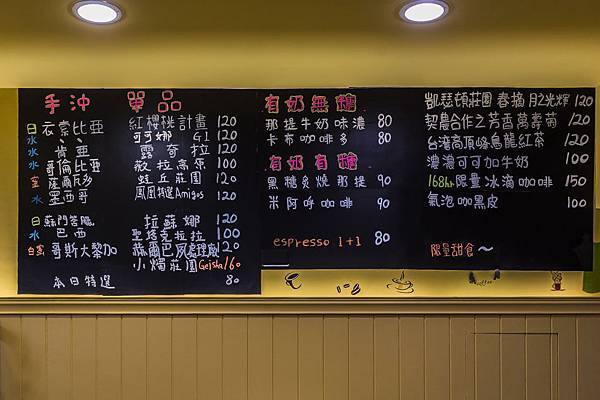 手沖 單品
日 衣索比亞 紅櫻桃計畫 120
水 、 可可娜 G1 120
水 肯亞 露奇拉 120
水 哥倫比亞 蕨拉高原 100
薩爾瓦多 蛙丘莊園 120
水 墨西哥 鳳凰特選 Amigos 120
日 蘇門答臘 拉蘇娜 120
水 巴西 聖塔克拉拉 100
哥斯大黎加 赫爾巴夙處理廠 120
小燭莊園 Geisha 160
本日特選 80
有奶無糖
那提牛奶味濃 80
卡布咖啡多 80
有奶有糖
黑糖炙燒那提 90
米阿呼咖啡 90
espresso 1+1 80
凱瑟頓莊園 春摘 月之光輝 120
契農合作之芳香萬壽菊 120
台灣高頂峰烏龍紅茶 120
濃濃可可加牛奶 100
168hr 限量冰滴咖啡 150
氣泡咖黑皮 100
限量甜食～